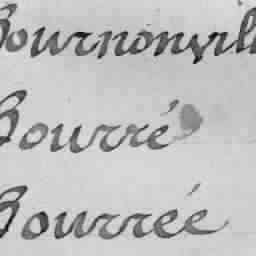 Bournonvill
Bourré
Bourrée